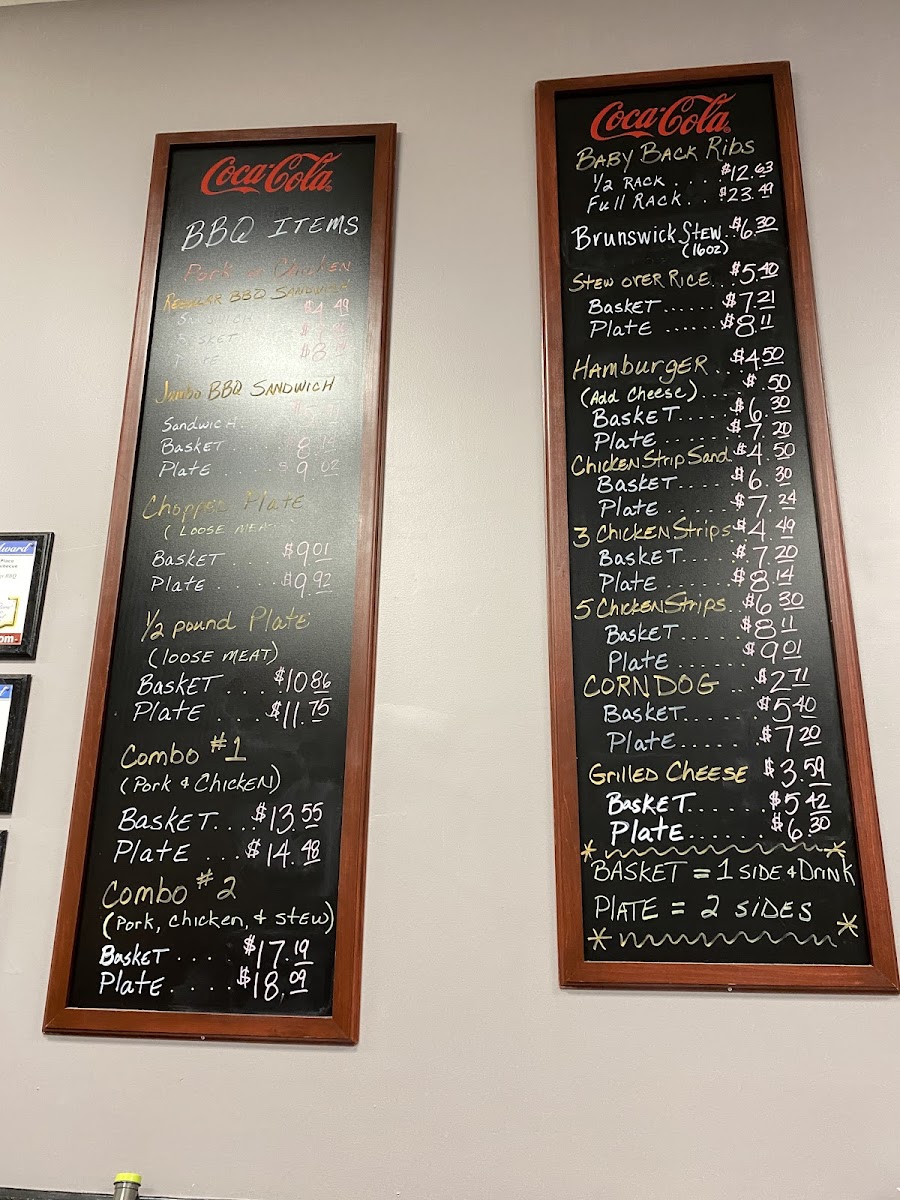 Coca-Cola
BBQ ITEMS
Pork or Chicken
REGULAR BBQ SANDWICH
SANDWICH $4.49
BASKET
PLATE $8.
Jumbo BBQ SANDWICH
SANDWICH.
BASKET . . . 8.
PLATE . . . . $9.02
Chopped Plate
(LOOSE MEAT
BASKET . . . $9.01
PLATE . . . . $9.92
1/2 pound Plate
(LOOSE MEAT)
BASKET . . . $10.86
PLATE . . . $11.75
Combo #1
(Pork & Chicken)
BASKET.... $13.55
PLATE ... $14.48
Combo #2
(Pork, chicken, & stew)
BASKET . . . . $17.19
Plate. . . . $18.09
Coca-Cola
BABY BACK Ribs
1/2 RACK . . . . $12.63
Full RACK. . . $23.49
Brunswick Stew.. $6.30
(16oz)
STEW OVER RICE... $5.40
BASKET...... $7.21
PLATE ...... $8.11
HAMBURGER ... $4.50
(Add cheese) .... $.50
BASKET...... $6.30
PLATE ....... $7.20
CHICKEN STRIP SAND. $4.50
BASKET...... $6.30
PLATE ....... $7.24
3 CHICKEN STRIPS. $4.49
BASKET...... $7.20
PLATE ...... $8.14
5 CHICKEN STRIPS.. $6.30
BASKET...... $8.11
PLATE ....... $9.01
CORNDOG ... $2.71
BASKET....... $5.40
PLATE ....... $7.20
GRILLED CHEESE $3.59
BASKET...... $5.42
PLATE....... $6.30
BASKET = 1 SIDE & DRINK
PLATE = 2 SIDES